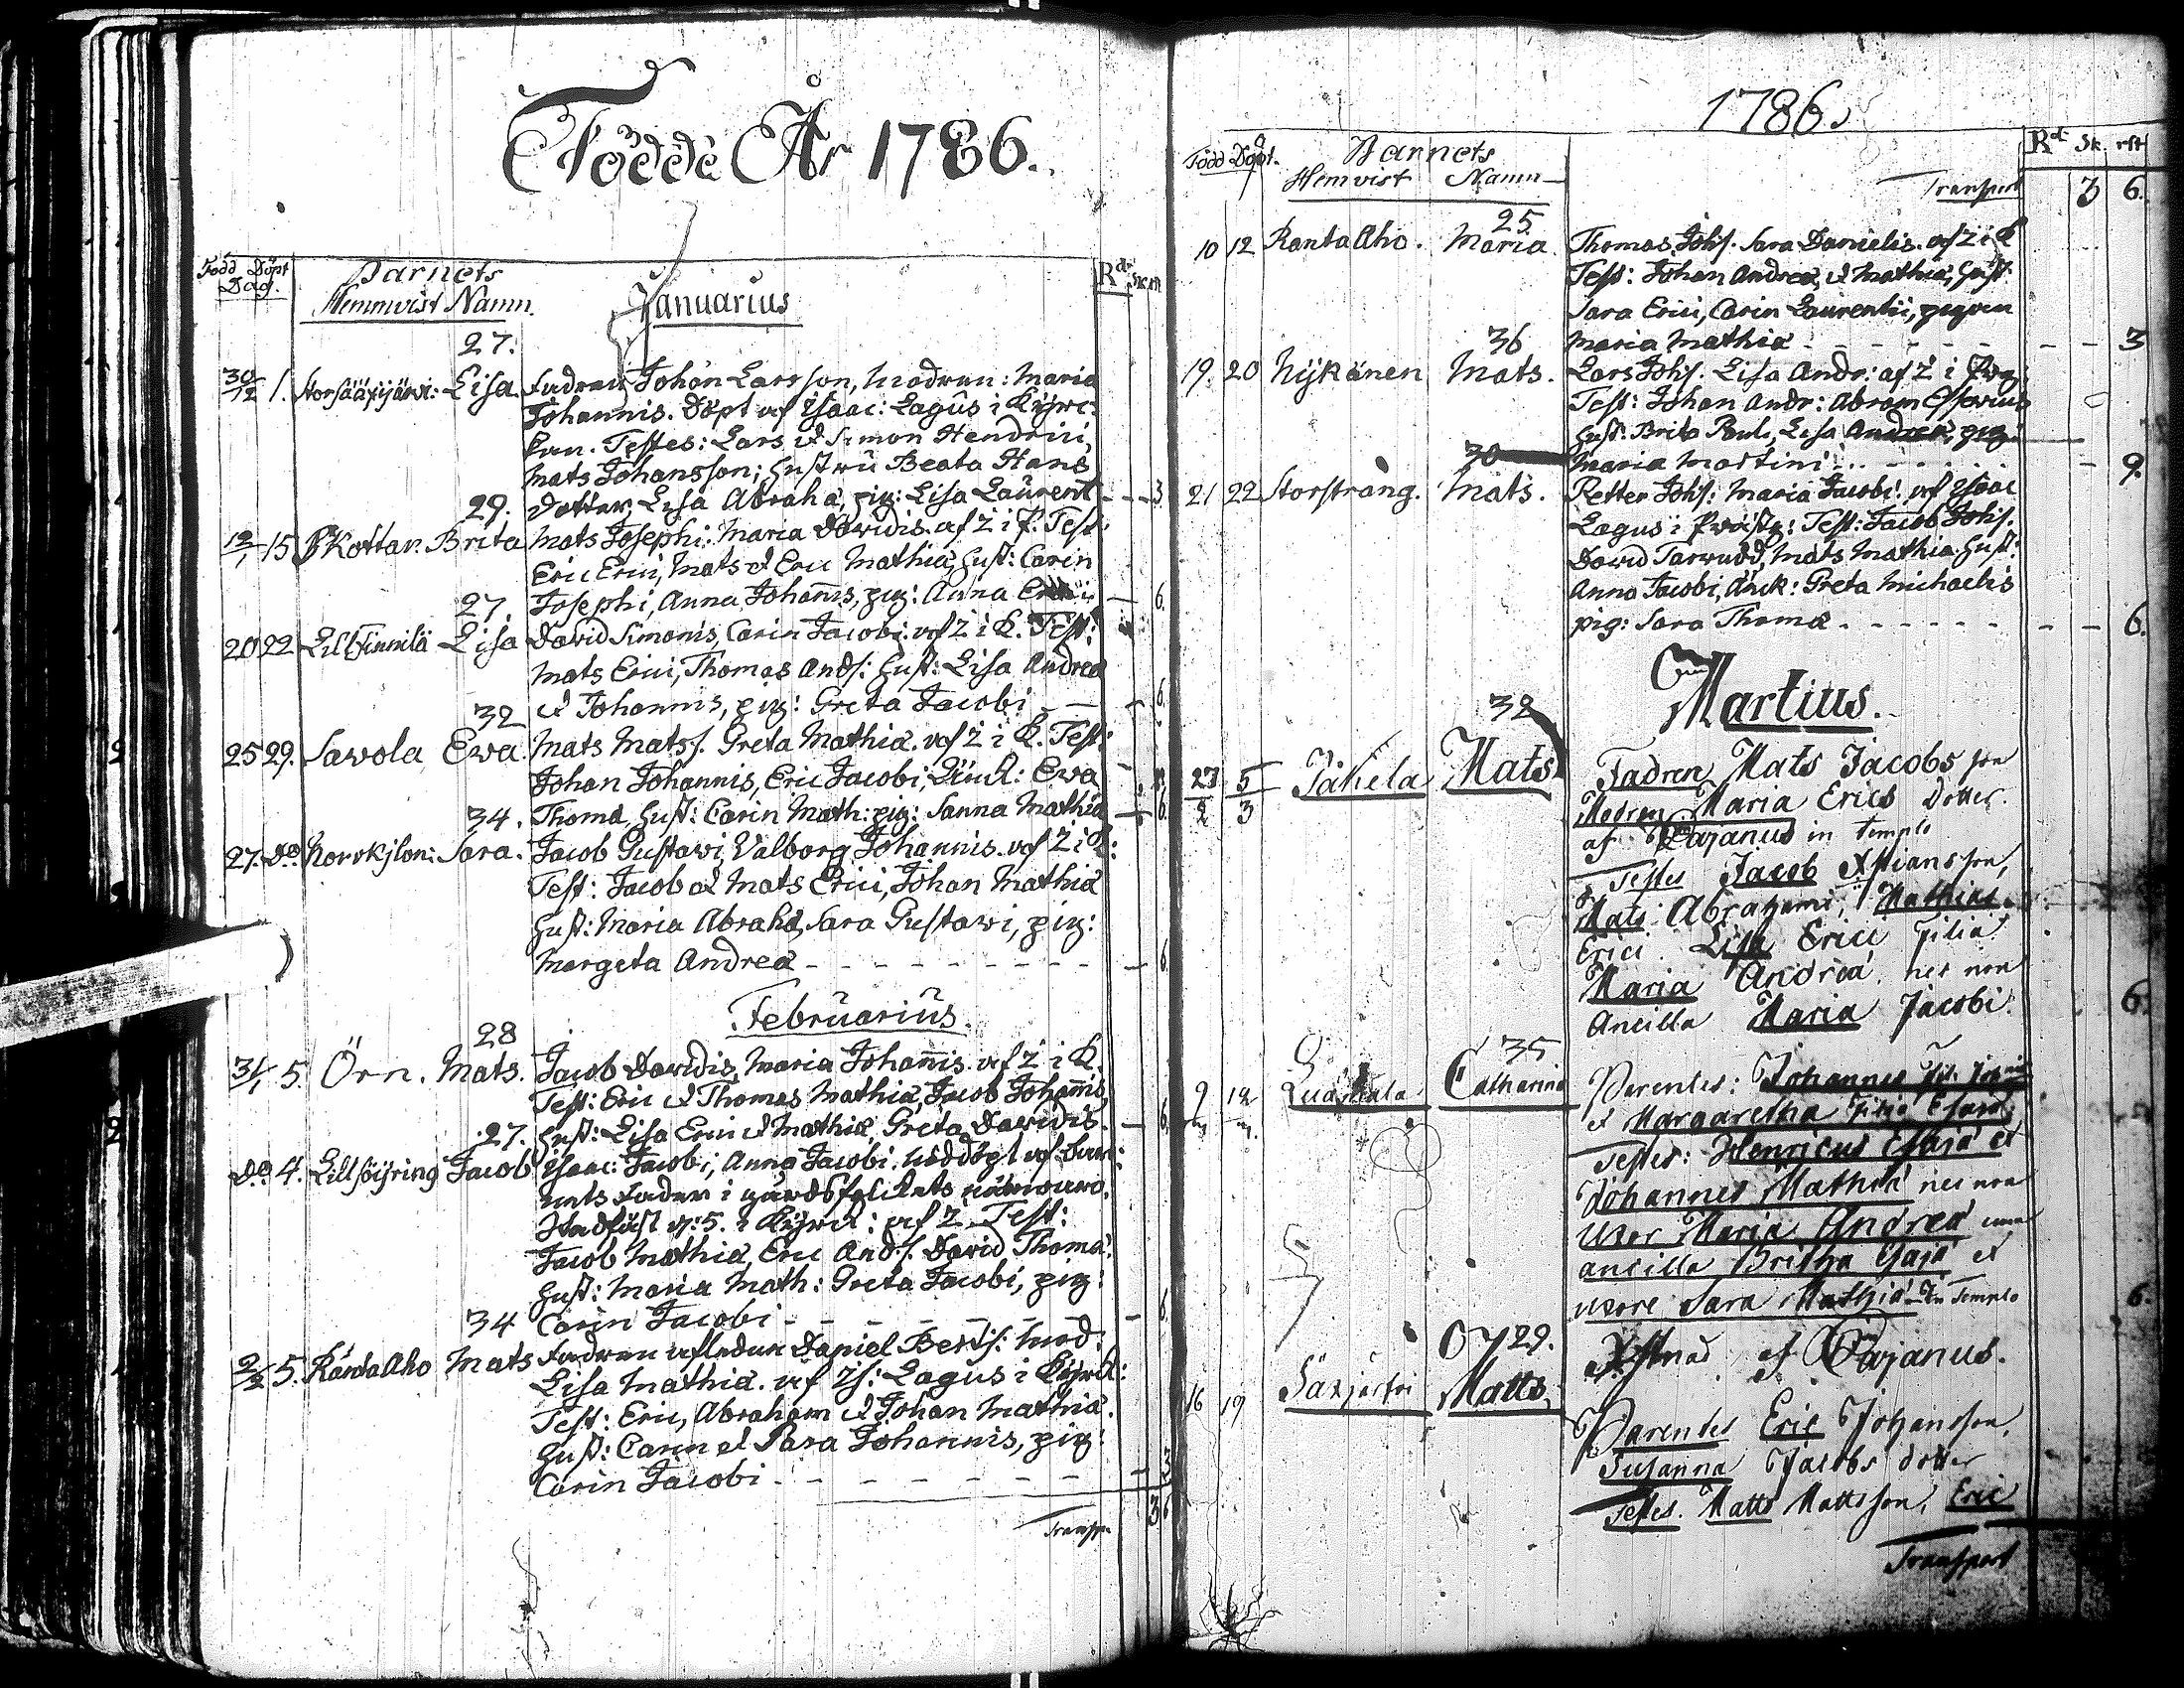 Födde År 1786.
Född Döpt
Dag.
Barnets
Hemmvist Namn.
Januarius
Rdr Sk. rst
27.
30/12 1. Storsääxjärvi: Lisa. Fadren Johan Larsson, Modren: Maria
Johannis. Döpt af Isaac: Lagus i Kyrc-
kan. Testes: Lars et Simon Hendrici,
Mats Johansson; Hustru Beata Hans
Dotter, Lisa Abrahæ, pig: Lisa Laurent --- 3
29.
12/1 15 Kottar. Brita Mats Josephi: Maria Davidis. af Z i P: Test:
Eric Erici, Mats et Eric Mathiæ, Hust: Carin
Josephi, Anna Johañis, pig: Anna — 6.
27.
20 22. Lill Finnilä Lisa David Simonis, Carin Jacobi. af Z i K. Test:
Mats Erici, Thomas Ands: Hust: Lisa Andreæ
et Johannis, pig: Greta Jacobi — — 6.
32
25 29. Savola Ewa. Mats Matss. Greta Mathiæ. af Z i K. Test:
Johan Johannis, Eric Jacobi, Ewa
Thomæ, Hust: Carin Math: pig: Sanna Mathiæ — 6.
34.
27. Do Sara. Jacob Gustavi, Valborg Johannis. af Z i K:
Test: Jacob et Mats Erici, Johan Mathiæ
Hust: Maria Abrahæ, Sara Gustavi, pig:
Margeta Andreæ - - - - - - - - - — 6
Februarius.
28
31/1 5. Örn. Mats. Jacob Davidis, Maria Johañis. af Z i K.
Test: Eric et Thomas Mathiæ, Jacob Johañis,
Hust: Lisa Erici et Mathiæ, Greta Davidis. — 6.
27.
Do 4. Jacob Isaac: Jacobi, Anna Jacobi. Nöddöpt af Bar-
nets Fader i gårdsfolckets närwaro.
Stadfäst d: 5. i Kyrck: af Z. Test:
Jacob Mathiæ, Eric Ands. David Thomæ.
Hust: Maria Math: Greta Jacobi, pig:
Carin Jacobi - - - - - - — 6
34
2/2 5. Ranta Aho Mats Fadren afledne Daniel Berts: Mod:
Lisa Mathiæ. af Is: Lagus i Kyrck:
Test: Eric, Abraham et Johan Mathiæ.
Hust: Carin et Sara Johannis, pig:
Carin Jacobi - - - - - - - — 3
3 6
Transp.
1786.
Född Döpt.
Barnets
Hemvist Namn
Rd Sk. rst
Transport 3 6.
25
10 12 Ranta Aho. Maria. Thomas Johs. Sara Danielis. af Z i K
Test: Johan Andreæ, et Mathiæ, Hust.
Sara Erici, Carin Laurentii, pigan
Maria Mathiæ - - - - - - - — 3
36
19. 20 Nykänen Mats. Lars Johs. Lisa Andr: af Z i
Test: Johan Andr: Abram
Hust: Brita Pauli, Lisa Andreæ, pig:
Maria Martini - - - - - - — 9.
30
21 22 Storstrang. Mats. Petter Johs: Maria Jacobi. af Isaac
Lagus i Test: Jacob Johs.
David Mats Mathiæ. Hust:
Anna Jacobi, Änck: Greta Michaelis
pig: Sara Thomæ - - - - - - — 6.
Martius.
32
27/2 5/3 Påkela Mats Fadren Mats Jacobs son
Modren Maria Erics Dotter.
af Pajanus in Templo
Testes Jacob Xstians son,
Mats Abrahami, Mathias
Erici. Lisa Erici Filia
Maria Andreæ nec non
Ancilla Maria Jacobi. 6
35
9 12 Catharina Parentes: Johannes
et Margaretha Filia
Testes: Henricus Esaiæ et
Johannes Mathiæ nec non
Uxor Maria Andreæ una
ancilla Britha Esaiæ et
uxore Sara Mathiæ In Templo 6.
Xstnad af Pajanus.
29.
16 19 Säxjärfvi Matts. Parentes Eric Johansson,
Susanna Jacobs dotter
Testes. Matts Mattsson, Eric
Transport